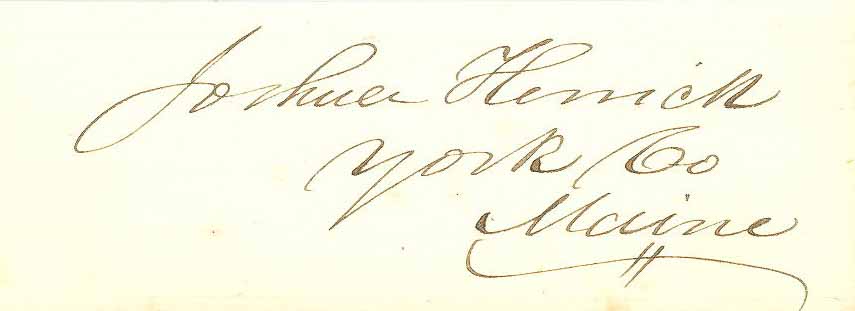 Joshua Herrick
York Co
Maine